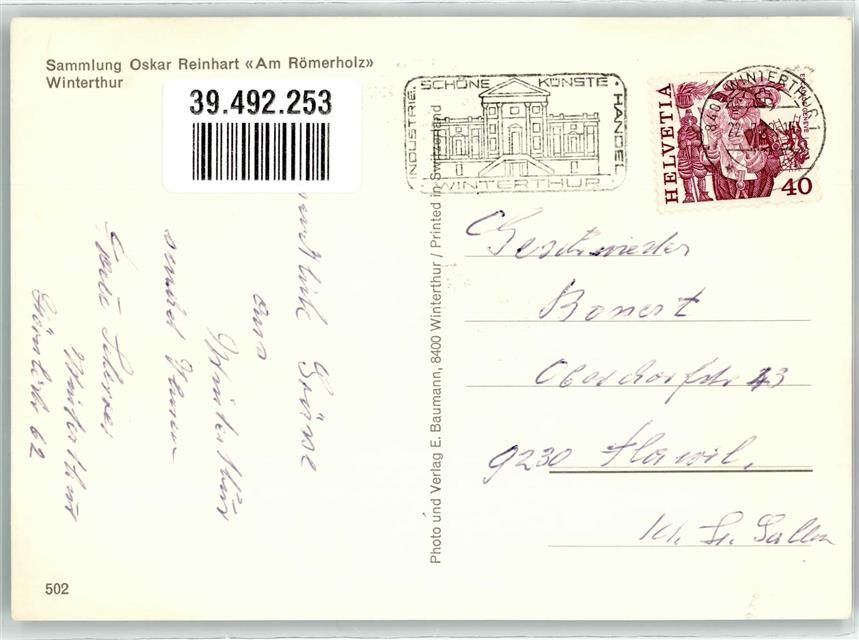 Sammlung Oskar Reinhart «Am Römerholz»
Winterthur
39.492.253
INDUSTRIE · SCHÖNE KÜNSTE · HANDEL
WINTERTHUR
HELVETIA
40
8401 WINTERTHUR 1
Photo und Verlag E. Baumann, 8400 Winterthur / Printed in Switzerland
Grüsse
aus
Winterthur
sendet Ihnen
Winterthur
62
Geschwister
Bonert
Oberdorfstr 43
9230 Flawil.
Kt. St. Gallen
502